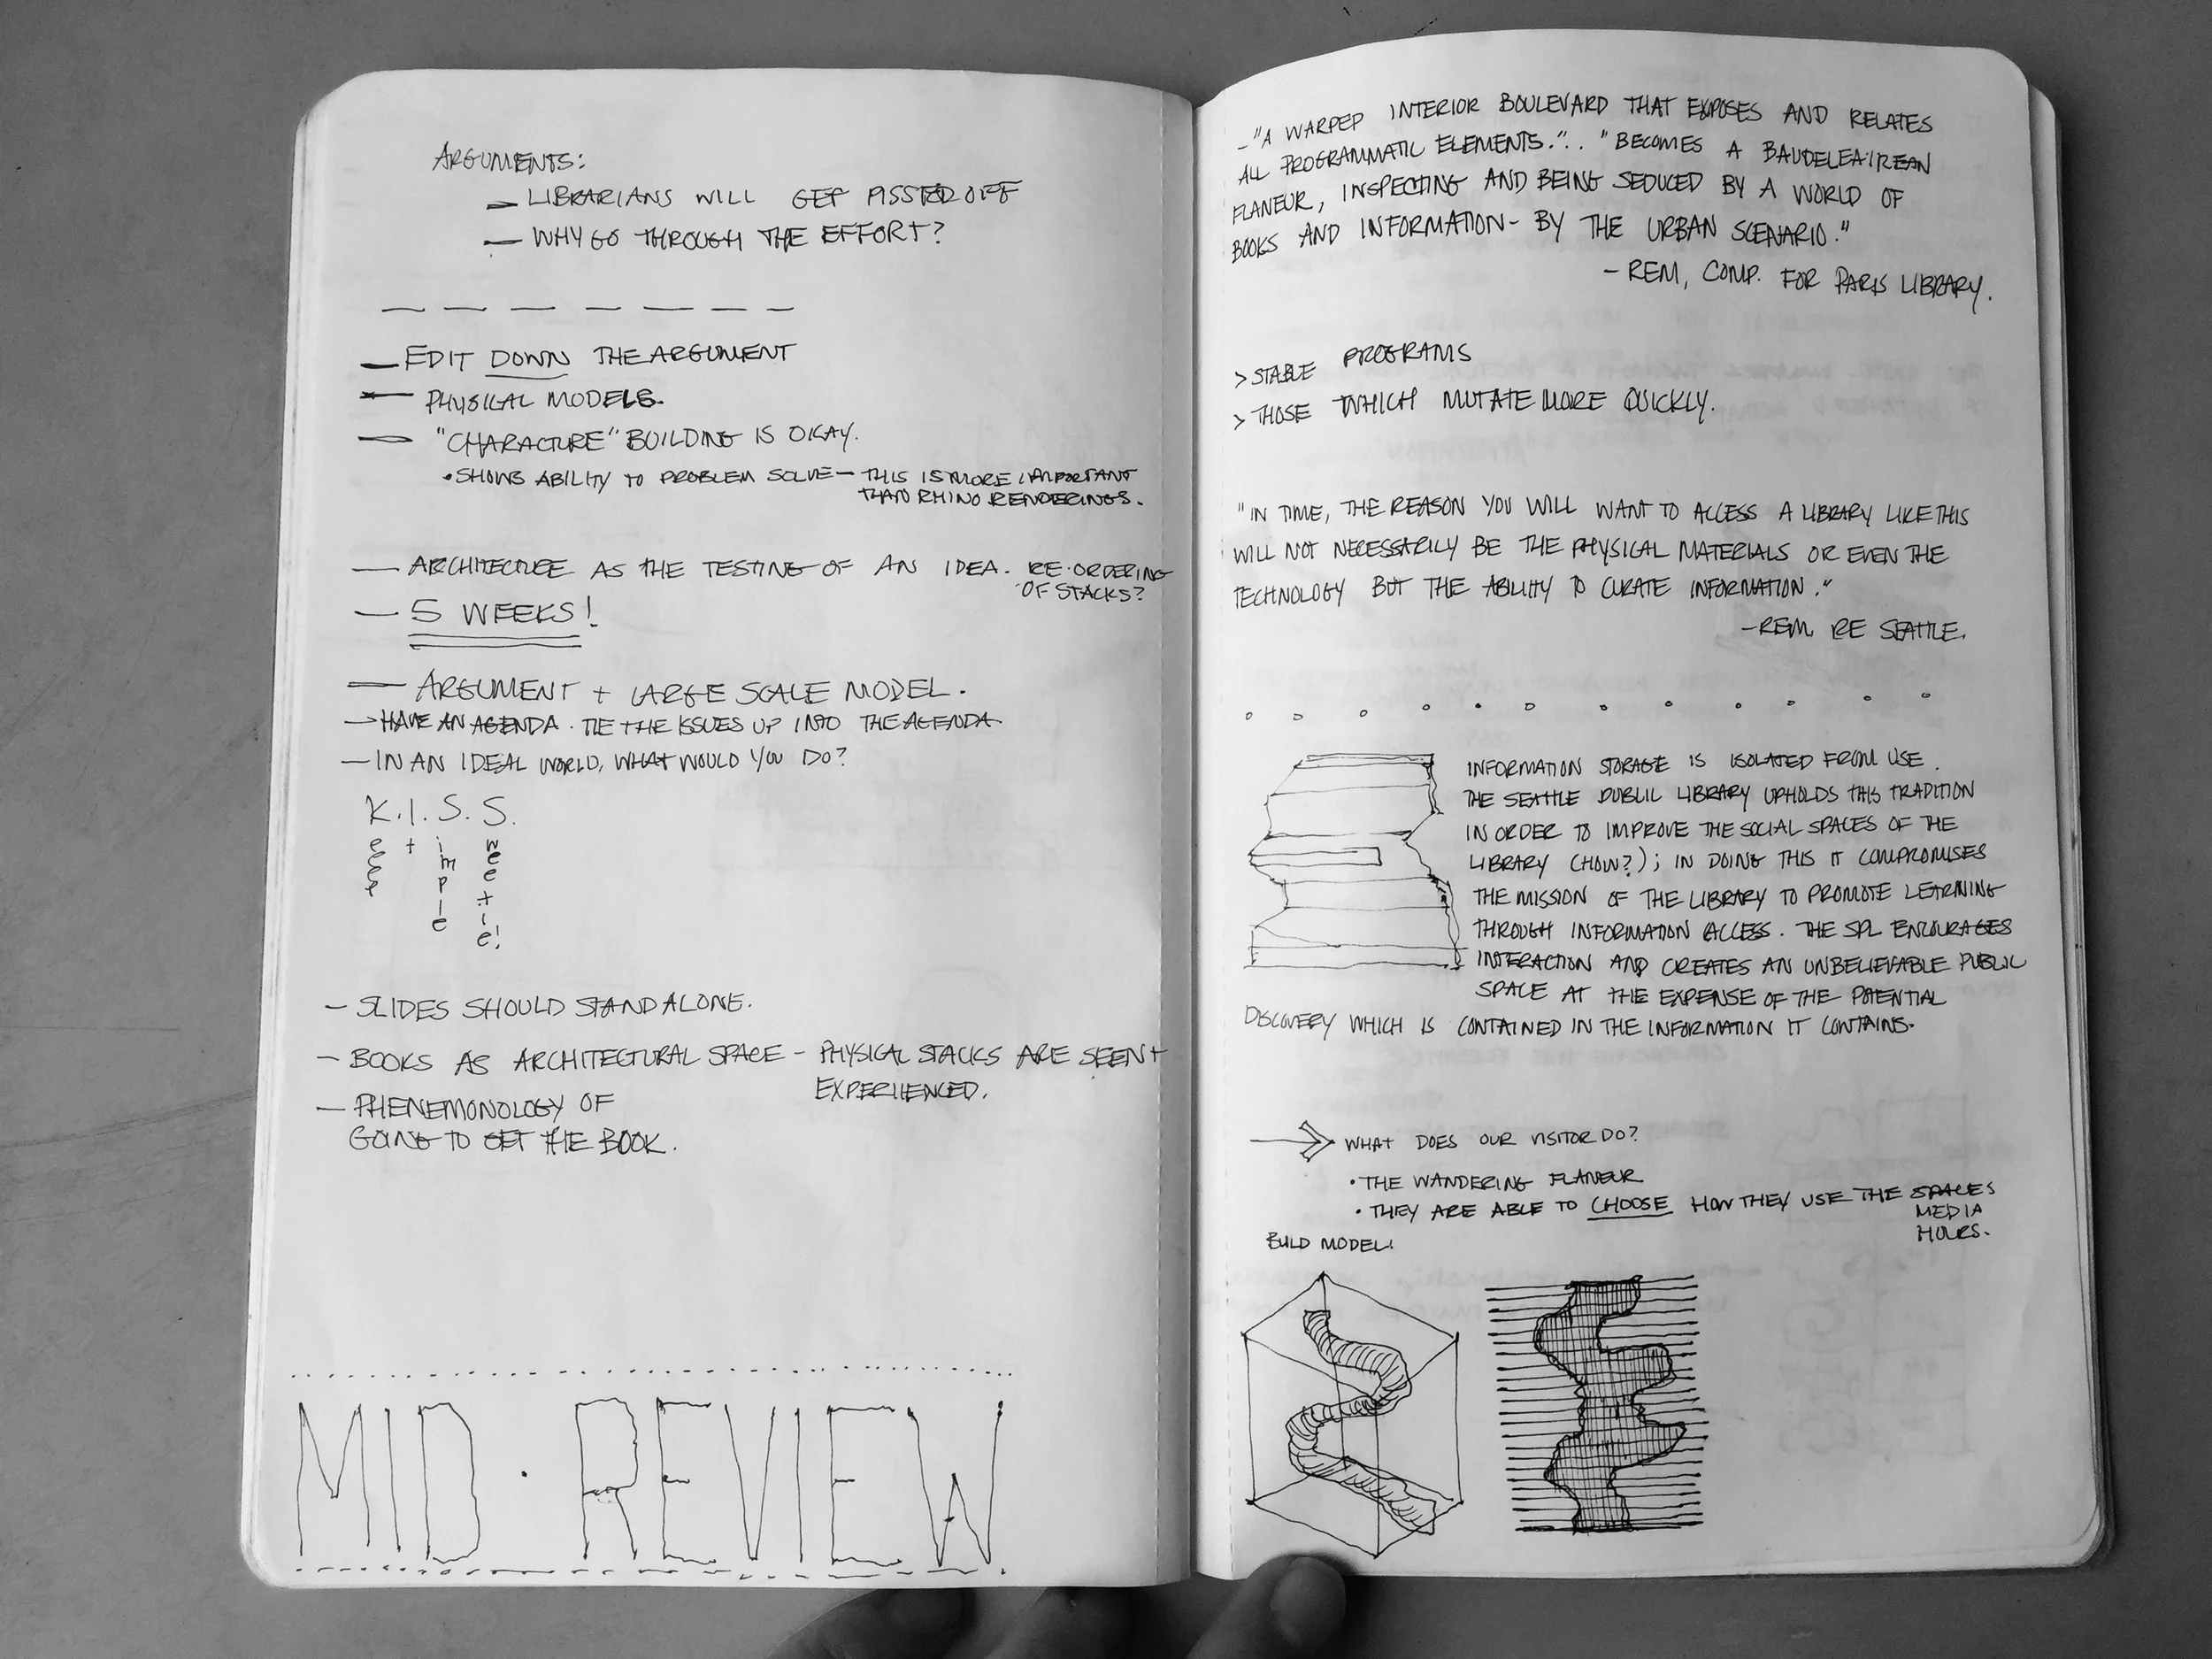 ARGUMENTS:
— LIBRARIANS WILL GET PISSED OFF
— WHY GO THROUGH THE EFFORT?
— EDIT DOWN THE ARGUMENT
— PHYSICAL MODELS.
— "CHARACTURE" BUILDING IS OKAY.
• SHOWS ABILITY TO PROBLEM SOLVE — THIS IS MORE IMPORTANT
THAN RHINO RENDERINGS.
— ARCHITECTURE AS THE TESTING OF AN IDEA. RE-ORDERING
OF STACKS?
— 5 WEEKS!
— ARGUMENT + LARGE SCALE MODEL.
— HAVE AN AGENDA. TIE THE ISSUES UP INTO THE AGENDA
— IN AN IDEAL WORLD, WHAT WOULD YOU DO?
K.I.S.S.
eeep t imple weetie!
— SLIDES SHOULD STAND ALONE.
— BOOKS AS ARCHITECTURAL SPACE — PHYSICAL STACKS ARE SEEN +
EXPERIENCED.
— PHENEMONOLOGY OF
GOING TO GET THE BOOK.
MID · REVIEW
— "A WARPED INTERIOR BOULEVARD THAT EXPOSES AND RELATES
ALL PROGRAMMATIC ELEMENTS."... "BECOMES A BAUDELEAIREAN
FLANEUR, INSPECTING AND BEING SEDUCED BY A WORLD OF
BOOKS AND INFORMATION - BY THE URBAN SCENARIO."
— REM, COMP. FOR PARIS LIBRARY.
> STABLE PROGRAMS
> THOSE WHICH MUTATE MORE QUICKLY.
"IN TIME, THE REASON YOU WILL WANT TO ACCESS A LIBRARY LIKE THIS
WILL NOT NECESSARILY BE THE PHYSICAL MATERIALS OR EVEN THE
TECHNOLOGY BUT THE ABILITY TO CURATE INFORMATION."
— REM, RE SEATTLE.
INFORMATION STORAGE IS ISOLATED FROM USE.
THE SEATTLE PUBLIC LIBRARY UPHOLDS THIS TRADITION
IN ORDER TO IMPROVE THE SOCIAL SPACES OF THE
LIBRARY (HOW?); IN DOING THIS IT COMPROMISES
THE MISSION OF THE LIBRARY TO PROMOTE LEARNING
THROUGH INFORMATION ACCESS. THE SPL ENCOURAGES
INTERACTION AND CREATES AN UNBELIEVABLE PUBLIC
SPACE AT THE EXPENSE OF THE POTENTIAL
DISCOVERY WHICH IS CONTAINED IN THE INFORMATION IT CONTAINS.
WHAT DOES OUR VISITOR DO?
• THE WANDERING FLANEUR
• THEY ARE ABLE TO CHOOSE HOW THEY USE THE SPACES
MEDIA
HOURS.
BUILD MODEL!